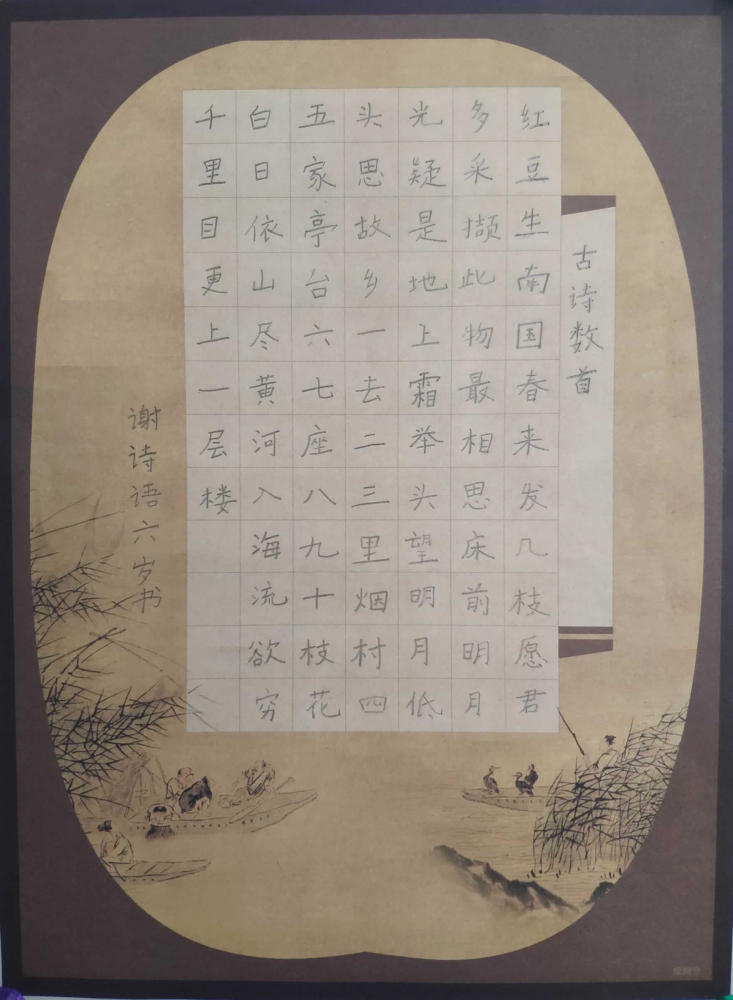 古诗数首
红豆生南国春来发几枝愿君
多采撷此物最相思床前明月
光疑是地上霜举头望明月低
头思故乡一去二三里烟村四
五家亭台六七座八九十枝花
白日依山尽黄河入海流欲穷
千里目更上一层楼
谢诗语六岁书